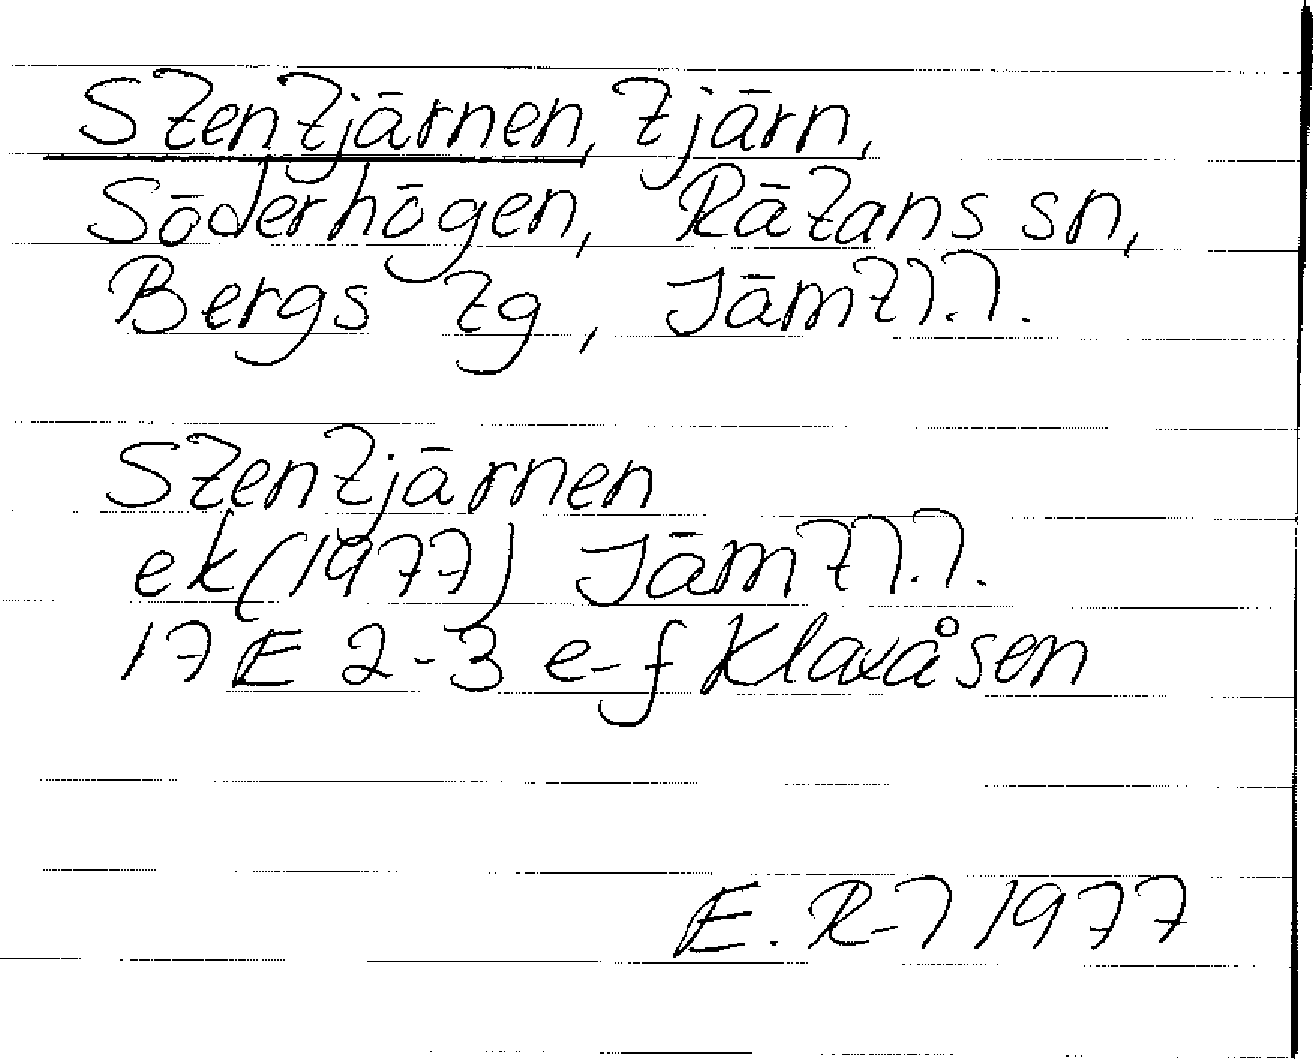 Stentjärnen, tjärn,
Söderhögen, Rätans sn,
Bergs tg, Jämtl.l.
Stentjärnen
ek (1977) Jämtl.l.
17 E 2-3 e-f Klaxåsen
E. R-l 1977